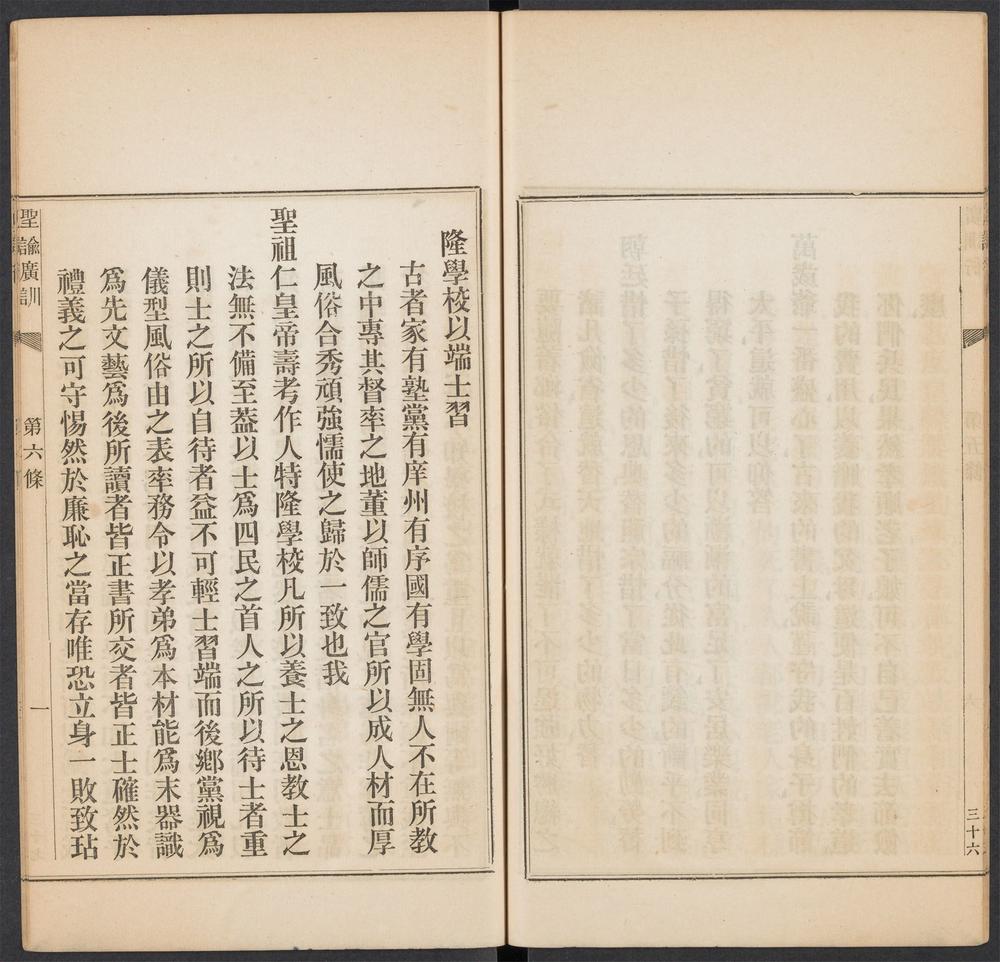 三十六
隆學校以端士習
古者家有塾黨有庠州有序國有學固無人不在所教
之中專其督率之地董以師儒之官所以成人材而厚
風俗合秀頑強懦使之歸於一致也我
聖祖仁皇帝壽考作人特隆學校凡所以養士之恩教士之
法無不備至葢以士爲四民之首人之所以待士者重
則士之所以自待者益不可輕士習端而後鄉黨視爲
儀型風俗由之表率務令以孝弟爲本材能爲末器識
爲先文藝爲後所讀者皆正書所交者皆正士確然於
禮義之可守惕然於廉恥之當存唯恐立身一敗致玷
聖諭廣訓 第六條 一